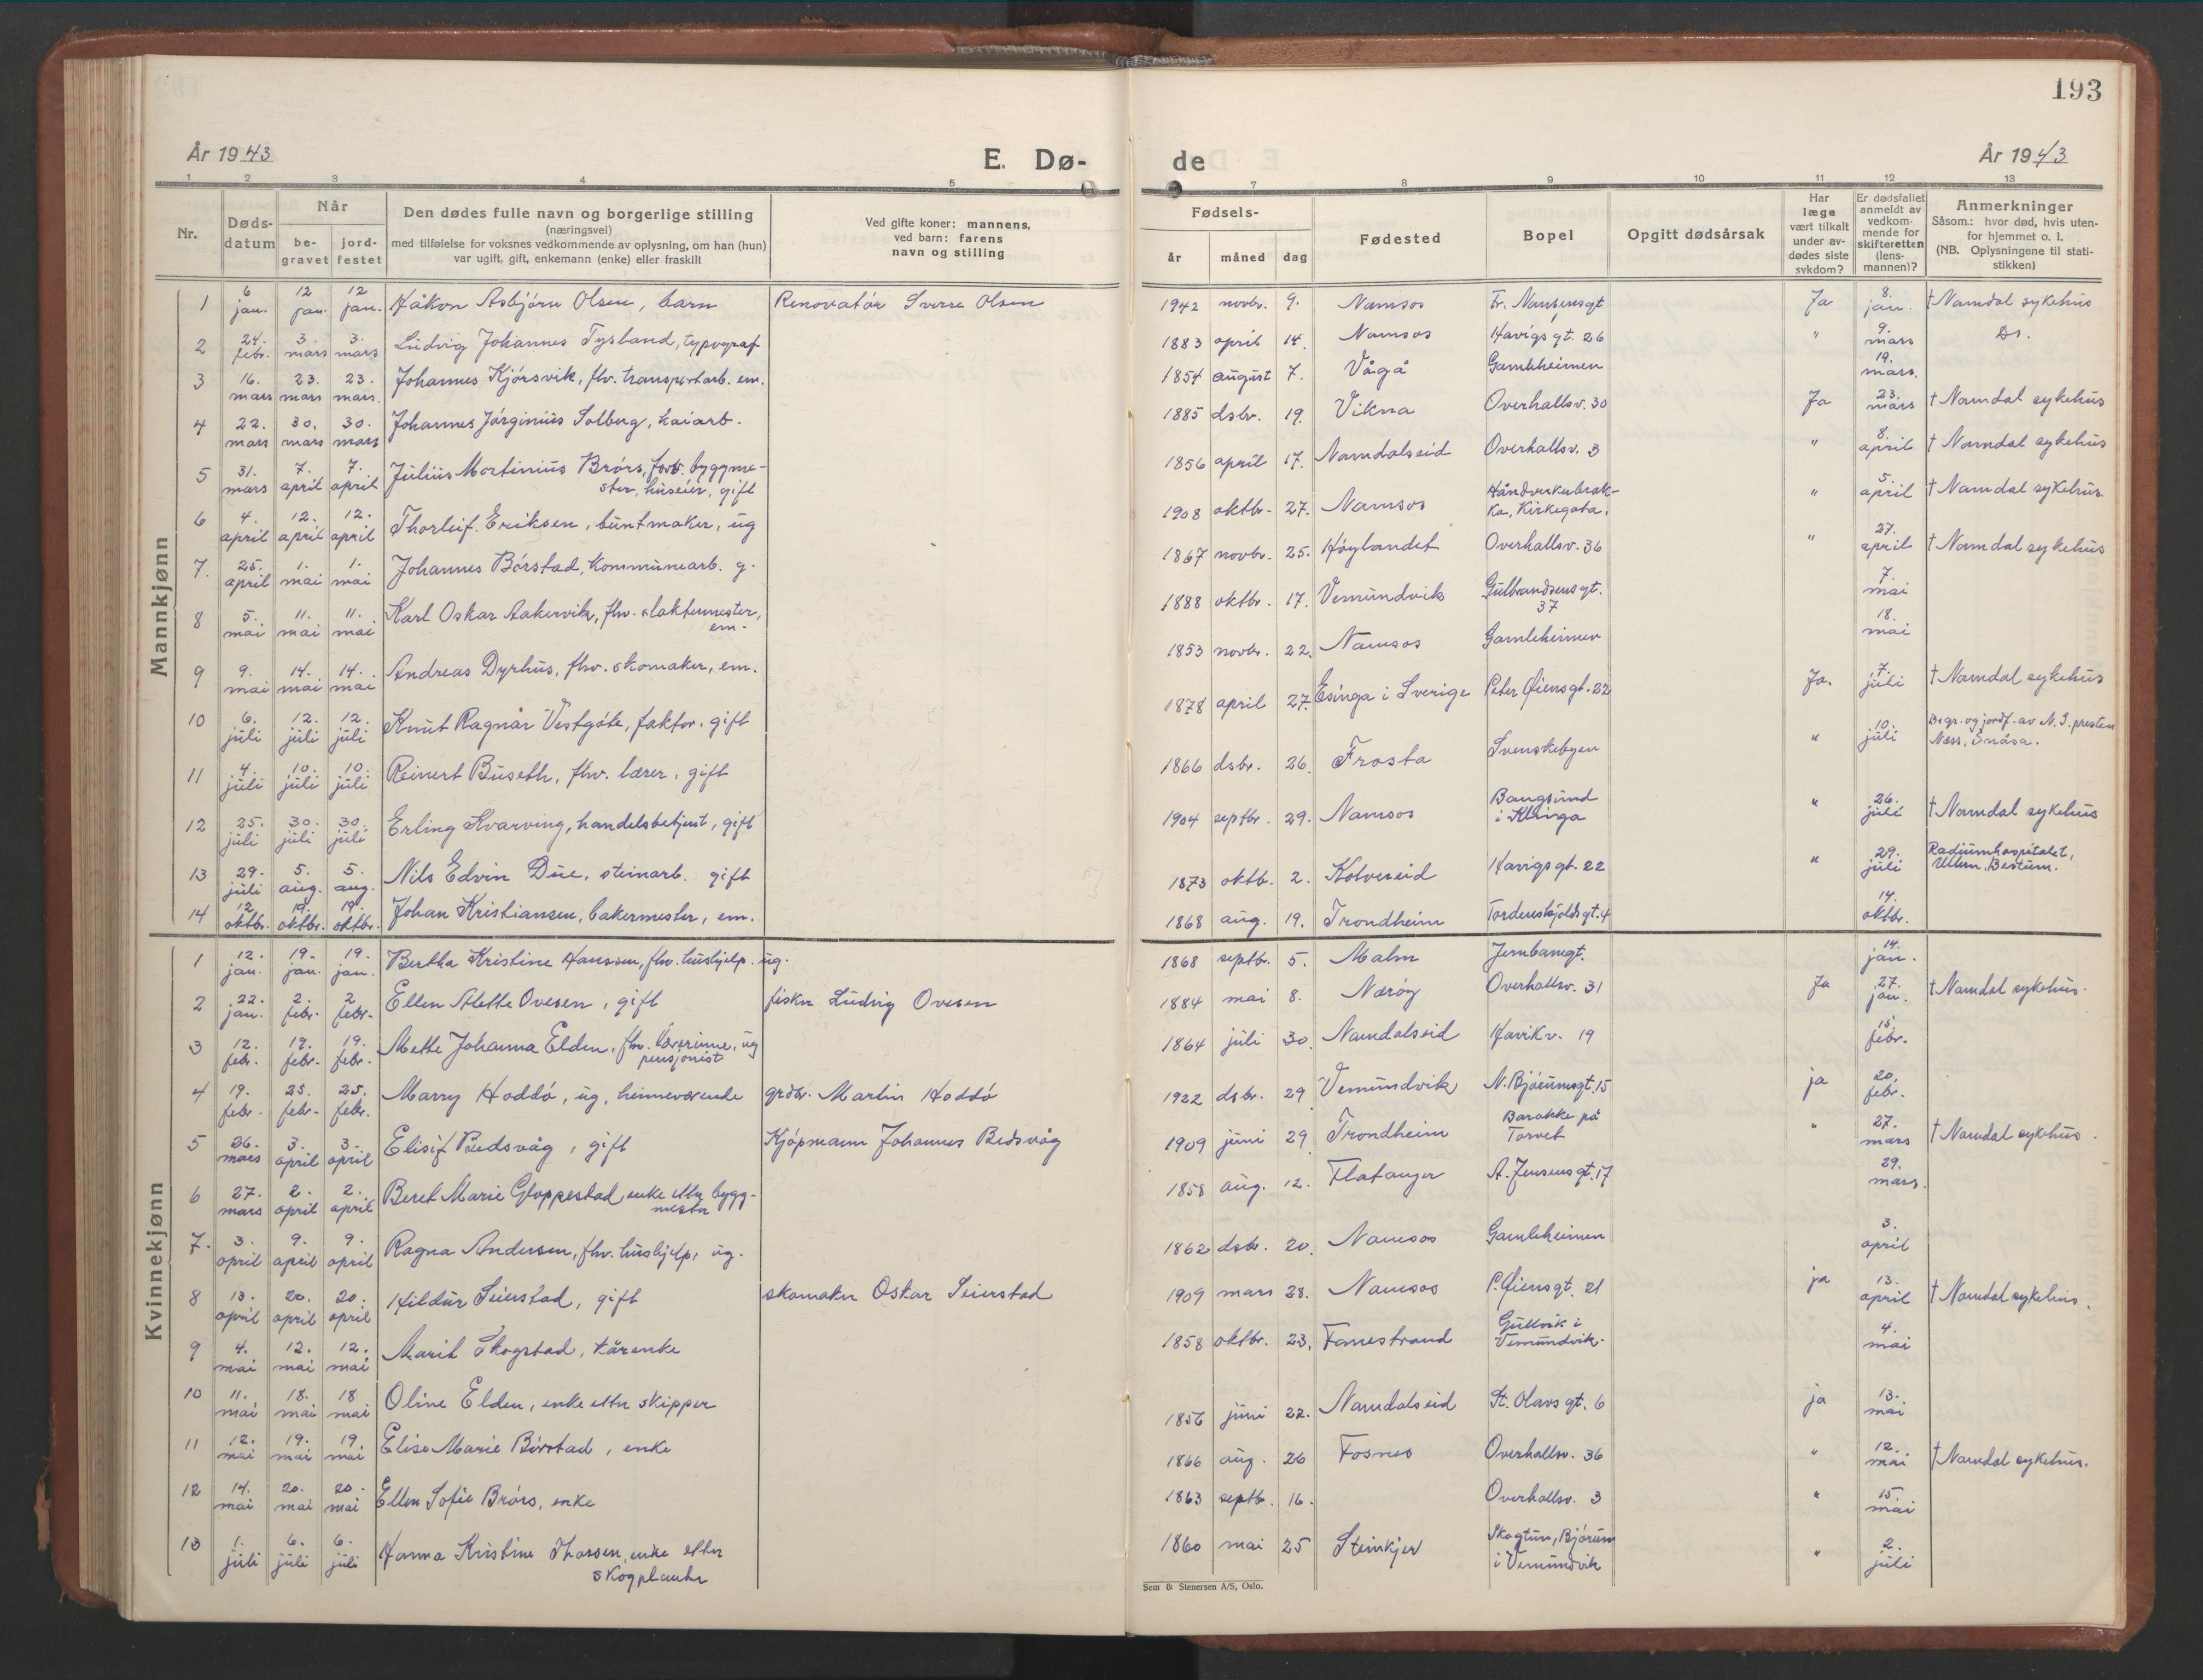 193
År 1943
E. Dø-
de
År 1943
1 2 3 4 5 7 8 9 10 11 12 13
Nr.
Døds-
datum
Når
be-
gravet
jord-
festet
Den dødes fulle navn og borgerlige stilling
(næringsvei)
med tilføielse for voksnes vedkommende av oplysning, om han (hun)
var ugift, gift, enkemann (enke) eller fraskilt
Ved gifte koner: mannens,
ved barn: farens
navn og stilling
Fødsels-
år måned dag
Fødested
Bopel
Opgitt dødsårsak
Har
læge
vært tilkalt
under av-
dødes siste
sykdom?
Er dødsfallet
anmeldt av
vedkom-
mende for
skifteretten
(lens-
mannen)?
Anmerkninger
Såsom.: hvor død, hvis uten-
for hjemmet o. l.
(NB. Oplysningene til stati-
stikken)
Mannkjønn
1 6 jan. 12 jan. 12 jan. Håkon Asbjørn Olsen, barn Renovatør Sverre Olsen 1942 novbr. 9. Namsos Fr. Nansensgt Ja 8. jan. † Namdal sykehus
2 24. febr. 3. mars 3. mars Ludvig Johannes Tysland, typograf 1883 april 14. Namsos Havigsgt. 26 " 9. mars Do.
3 16. mars 23. mars 23. mars. Johannes Kjørsvik, fhv. transportarb. em. 1854 august 7. Vågå Gamleheimen 19. mars.
4 22. mars 30. mars 30. mars Johannes Jørginius Solberg, kaiarb. 1885 dsbr. 19. Vikna Overhallsv. 30 Ja 23. mars † Namdal sykehus
5 31. mars 7. april 7. april Julius Martinius Brørs, forv. byggme-
ster, huseier, gift 1856 april 17. Namdalseid Overhallsv. 3 " 8. april † Namdal sykehus
6 4. april 12. april 12. april Thorleif Eriksen, buntmaker, ug 1908 oktbr. 27. Namsos Håndverkerbrak-
ka, Kirkegata. " 5. april † Namdal sykehus
7. 25. april 1. mai 1. mai Johannes Børstad, kommunearb. g. 1867 novbr. 25. Høylandet Overhallsv. 36 " 27. april † Namdal sykehus
8 5. mai 11. mai 11. mai Karl Oskar Aakervik, fhv. slaktermester,
em. 1888 oktbr. 17. Vemundvik Gulbrandsensgt.
37 7. mai
9 9. mai 14. mai 14. mai Andreas Dyrhus, fhv. skomaker, em. 1853 novbr. 22. Namsos Gamleheimen 18. mai
10 6. juli 12. juli 12. juli Knut Ragnar Vestgøte, faktor, gift 1878 april 27. Esinga i Sverige Peter Øiensgt. 22 Ja. 7. juli † Namdal sykehus
11 4. juli 10. juli 10. juli Reinert Buseth, fhv. lærer, gift 1866 dsbr. 26. Frosta Svenskebyen " 10. juli Begr. og jordf. av N. S. presten
Næss, Snåsa.
12 25. juli 30. juli 30. juli Erling Kvarving, handelsbetjent, gift 1904 septbr. 29. Namsos Bangsund
i Klinga " 26. juli † Namdal sykehus
13 29. juli 5. aug. 5. aug. Nils Edvin Due, steinarb. gift 1873 oktb. 2. Kolvereid Havigsgt. 22 " 29. juli Radiumhospitalet,
Ullern, Bestum.
14 12 oktbr. 19. oktbr. 19. oktbr. Johan Kristiansen, bakermester, em. 1868 aug. 19. Trondheim Tordenskjoldsgt. 4 14. oktbr.
Kvinnekjønn
1 12. jan. 19. jan. 19. jan. Bertha Kristine Hanssen, fhv. hushjelp. ug. 1868 septbr. 5. Malm Jernbanegt. 14. jan.
2 22. jan. 2. febr. 2 febr. Ellen Mette Ovesen, gift fisker Ludvig Ovesen 1884 mai 8. Nærøy Overhallsv. 31 Ja 27. jan. † Namdal sykehus.
3 12. febr. 19. febr. 19. febr. Mette Johanna Elden, fhv. lærerinne, ug
pensjonist 1864 juli 30. Namdalseid Havikv. 19 15. febr.
4 19. febr. 25. febr. 25. febr. Marry Hoddø, ug, hjemmeværende grdbr. Martin Hoddø 1922 dsbr. 29 Vemundvik N. Bjørumsgt. 15 ja 20. febr.
5 26. mars 3. april 3. april Elisif Bedsvåg, gift Kjøpmann Johannes Bedsvåg 1909 juni 29. Trondheim Barakke på
Torvet " 27. mars † Namdal sykehus.
6 27. mars 2. april 2. april Beret Marie Gloppestad enke etter bygg-
mester 1858 aug. 12. Flatanger A. Jensensgt. 17 29. mars.
7. 3. april 9. april 9. april Ragna Andersen, fhv. hushjelp, ug. 1862 dsbr. 20. Namsos Gamleheimen 3. april
8 13. april 20. april 20. april Hildur Seierstad, gift skomaker Oskar Seierstad 1909 mars 28. Namsos P. Øiensgt. 21 ja 13. april † Namdal sykehus.
9 4. mai 12. mai 12. mai Marit Skogstad, kårenke 1858 oktbr. 23. Fannestrand Gullvik i
Vemundvik. 4. mai
10 11. mai 18. mai 18 mai Oline Elden, enke etter skipper 1856 juni 22. Namdalseid St. Olavsgt. 6 ja 13. mai
11 12. mai 19. mai 19. mai Elise Marie Børstad, enke 1866 aug. 26 Fosnes Overhallsv. 36 " 12. mai † Namdal sykehus.
12 14. mai 20. mai 20. mai Ellen Sofie Brørs, enke 1863 septb. 16. Overhallsv. 3 " 15. mai
13 1. juli 6. juli 6. juli Hanna Kristine Thorsen, enke etter
skogplanter 1860 mai 25 Steinkjer Skogtun, Bjørum
i Vemundvik " 2. juli
Sem & Stenersen A/S, Oslo.